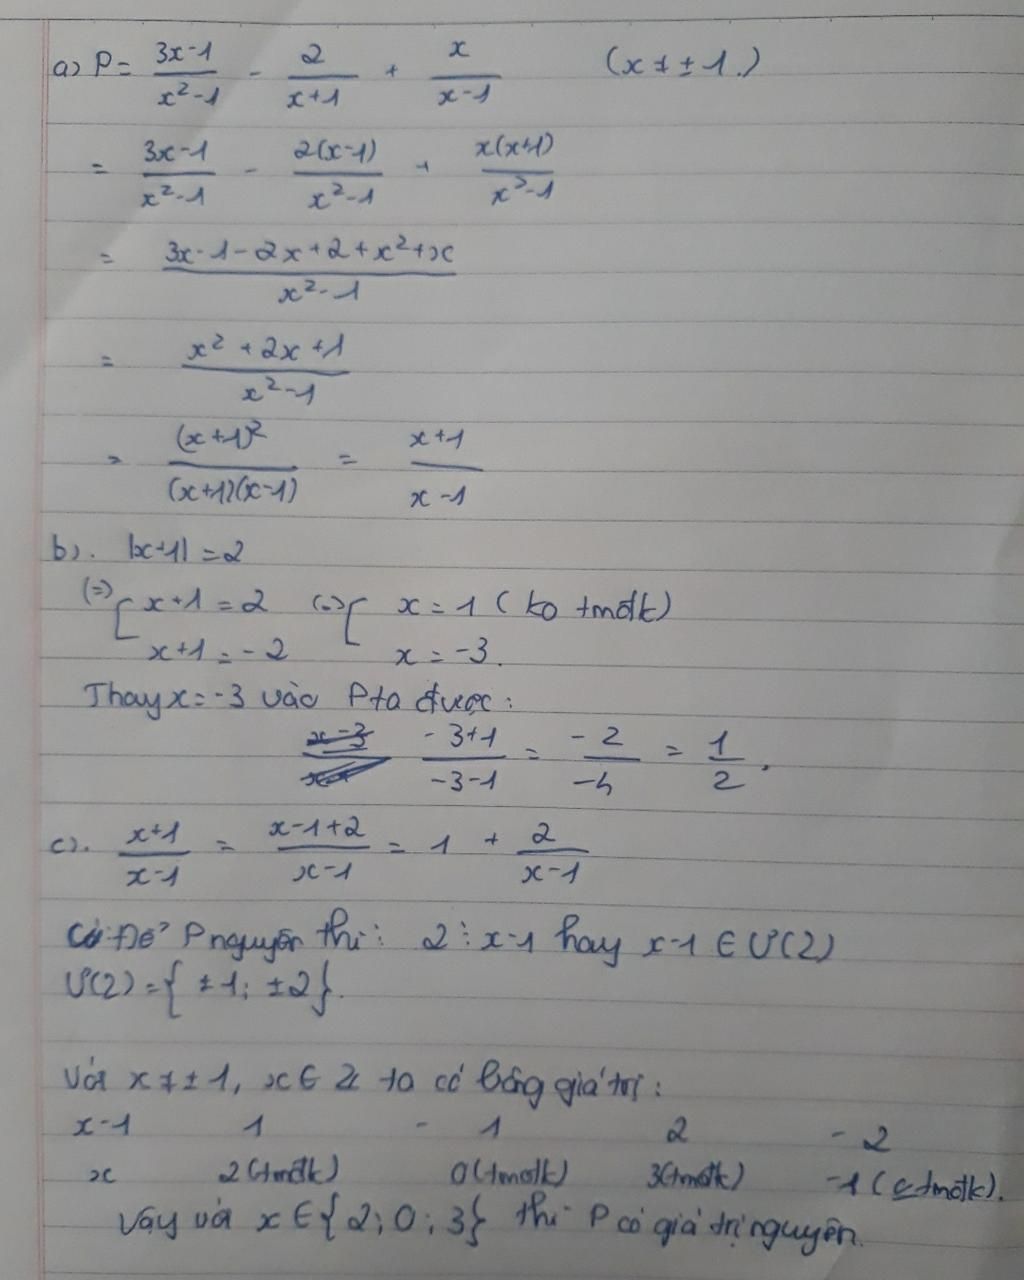 a) P = (3x-1)/(x²-1) - 2/(x+1) + x/(x-1) (x ≠ ±1.)
= (3x-1)/(x²-1) - 2(x-1)/(x²-1) + x(x+1)/(x²-1)
= (3x-1-2x+2+x²+x)/(x²-1)
= (x²+2x+1)/(x²-1)
= (x+1)²/((x+1)(x-1)) = (x+1)/(x-1)
b). |x+1| = 2
(=) [ x+1 = 2 (=) [ x = 1 ( ko tmđk)
x+1 = -2 x = -3.
Thay x = -3 vào P ta được:
(-3+1)/(-3-1) = -2/-4 = 1/2.
c). (x+1)/(x-1) = (x-1+2)/(x-1) = 1 + 2/(x-1)
Để P nguyên thì: 2 ⋮ x-1 hay x-1 ∈ Ư(2)
Ư(2) = { ±1; ±2}.
Với x ≠ ±1, x ∈ Z ta có bảng giá trị:
x-1 1 -1 2 -2
x 2 (tmđk) 0 (tmđk) 3 (tmđk) -1 ( tmđk).
Vậy với x ∈ { 2; 0; 3} thì P có giá trị nguyên.